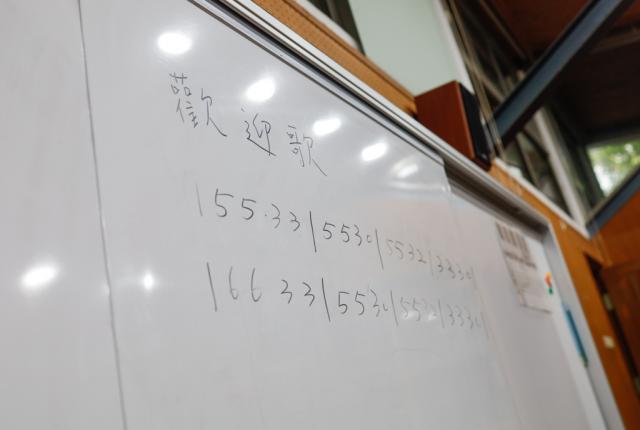 歡迎歌
|55.33|5530|5532|3330|
|66 33|5530|5532|3330|